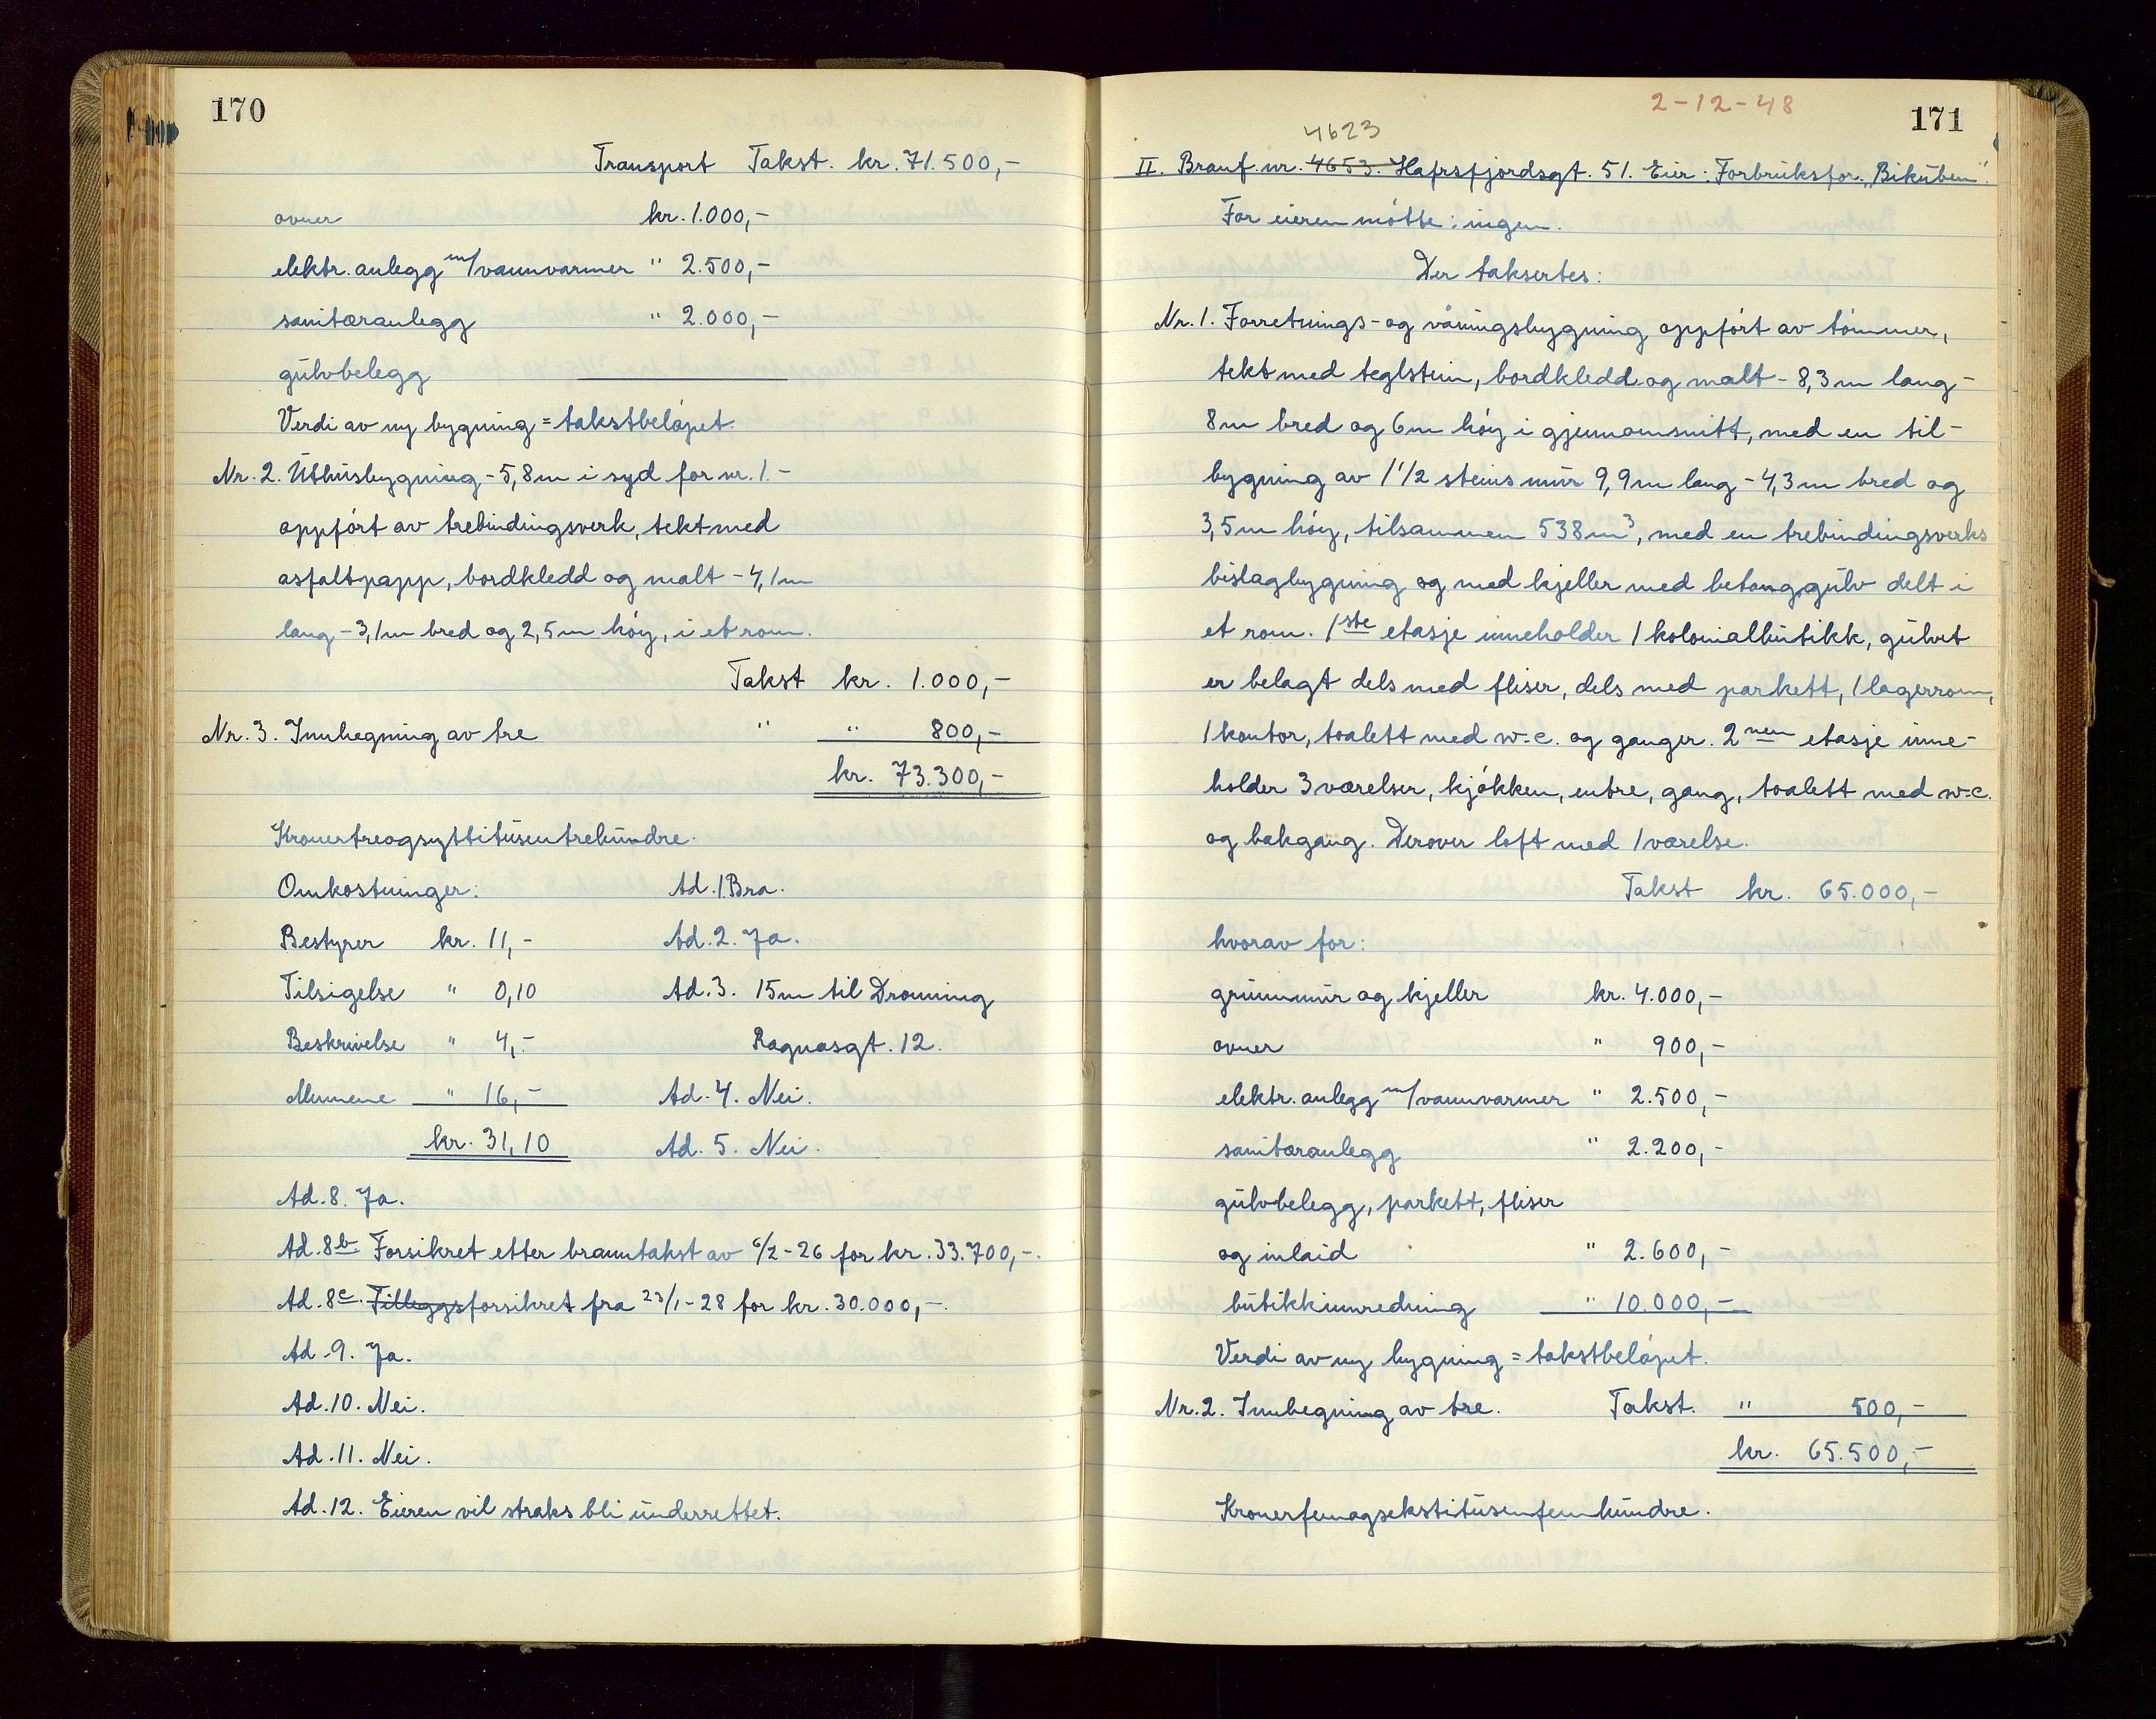 170
Transport Takst. kr. 71.500,-
ovner kr. 1.000,-
elektr. anlegg m/vannvarmer " 2.500,-
sanitæranlegg " 2.000,-
gulvbelegg
Verdi av ny bygning = takstbeløpet.
Nr. 2. Uthusbygning - 5,8 m i syd for nr. 1. -
oppført av trebindingsverk, tekt med
asfaltpapp, bordkledd og malt - 4,1 m
lang - 3,1 m bred og 2,5 m høy, i et rom.
Takst kr. 1.000,-
Nr. 3. Innhegning av tre " " 800,-
kr. 73.300,-
Kronertreogsyttitusentrehundre.
Omkostninger: Ad. 1. Bra.
Bestyrer kr. 11,- Ad. 2. Ja.
Tilsigelse " 0,10 Ad. 3. 15 m til Dronning
Beskrivelse " 4,- Ragnasgt. 12.
Mennene " 16,- Ad. 4. Nei.
kr. 31,10 Ad. 5. Nei.
Ad. 8. Ja.
Ad. 8b. Forsikret etter branntakst av 6/2-26 for kr. 33.700,-.
Ad. 8c. Tilleggsforsikret fra 23/1-28 for kr. 30.000,-.
Ad. 9. Ja.
Ad. 10. Nei.
Ad. 11. Nei.
Ad. 12. Eieren vil straks bli underrettet.
2-12-48
171
4623
II. Branf. nr. 4653. Hafrsfjordsgt. 51. Eier: Forbruksfor. "Bikuben".
For eieren møtte: ingen.
Der taksertes:
Nr. 1. Forretnings- og våningsbygning oppført av tømmer,
tekt med teglstein, bordkledd og malt - 8,3 m lang -
8 m bred og 6 m høy i gjennomsnitt, med en til-
bygning av 1 1/2 steins mur 9,9 m lang - 4,3 m bred og
3,5 m høy, tilsammen 538 m3, med en trebindingsverks
bislagbygning og med kjeller med betonggulv delt i
et rom. 1ste etasje inneholder 1 kolonialbutikk, gulvet
er belagt dels med fliser, dels med parkett, 1 lagerrom,
1 kontor, toalett med w.c. og ganger. 2nen etasje inne-
holder 3 værelser, kjøkken, entre, gang, toalett med w.c.
og bakgang. Derover loft med 1 værelse.
Takst kr. 65.000,-
hvorav for:
grunnmur og kjeller kr. 4.000,-
ovner " 900,-
elektr. anlegg m/vannvarmer " 2.500,-
sanitæranlegg " 2.200,-
gulvbelegg, parkett, fliser
og inlaid " 2.600,-
butikkinnredning " 10.000,-
Verdi av ny bygning = takstbeløpet.
Nr. 2. Innhegning av tre. Takst. " 500,-
kr. 65.500,-
Kronerfemogsekstitusenfemhundre.